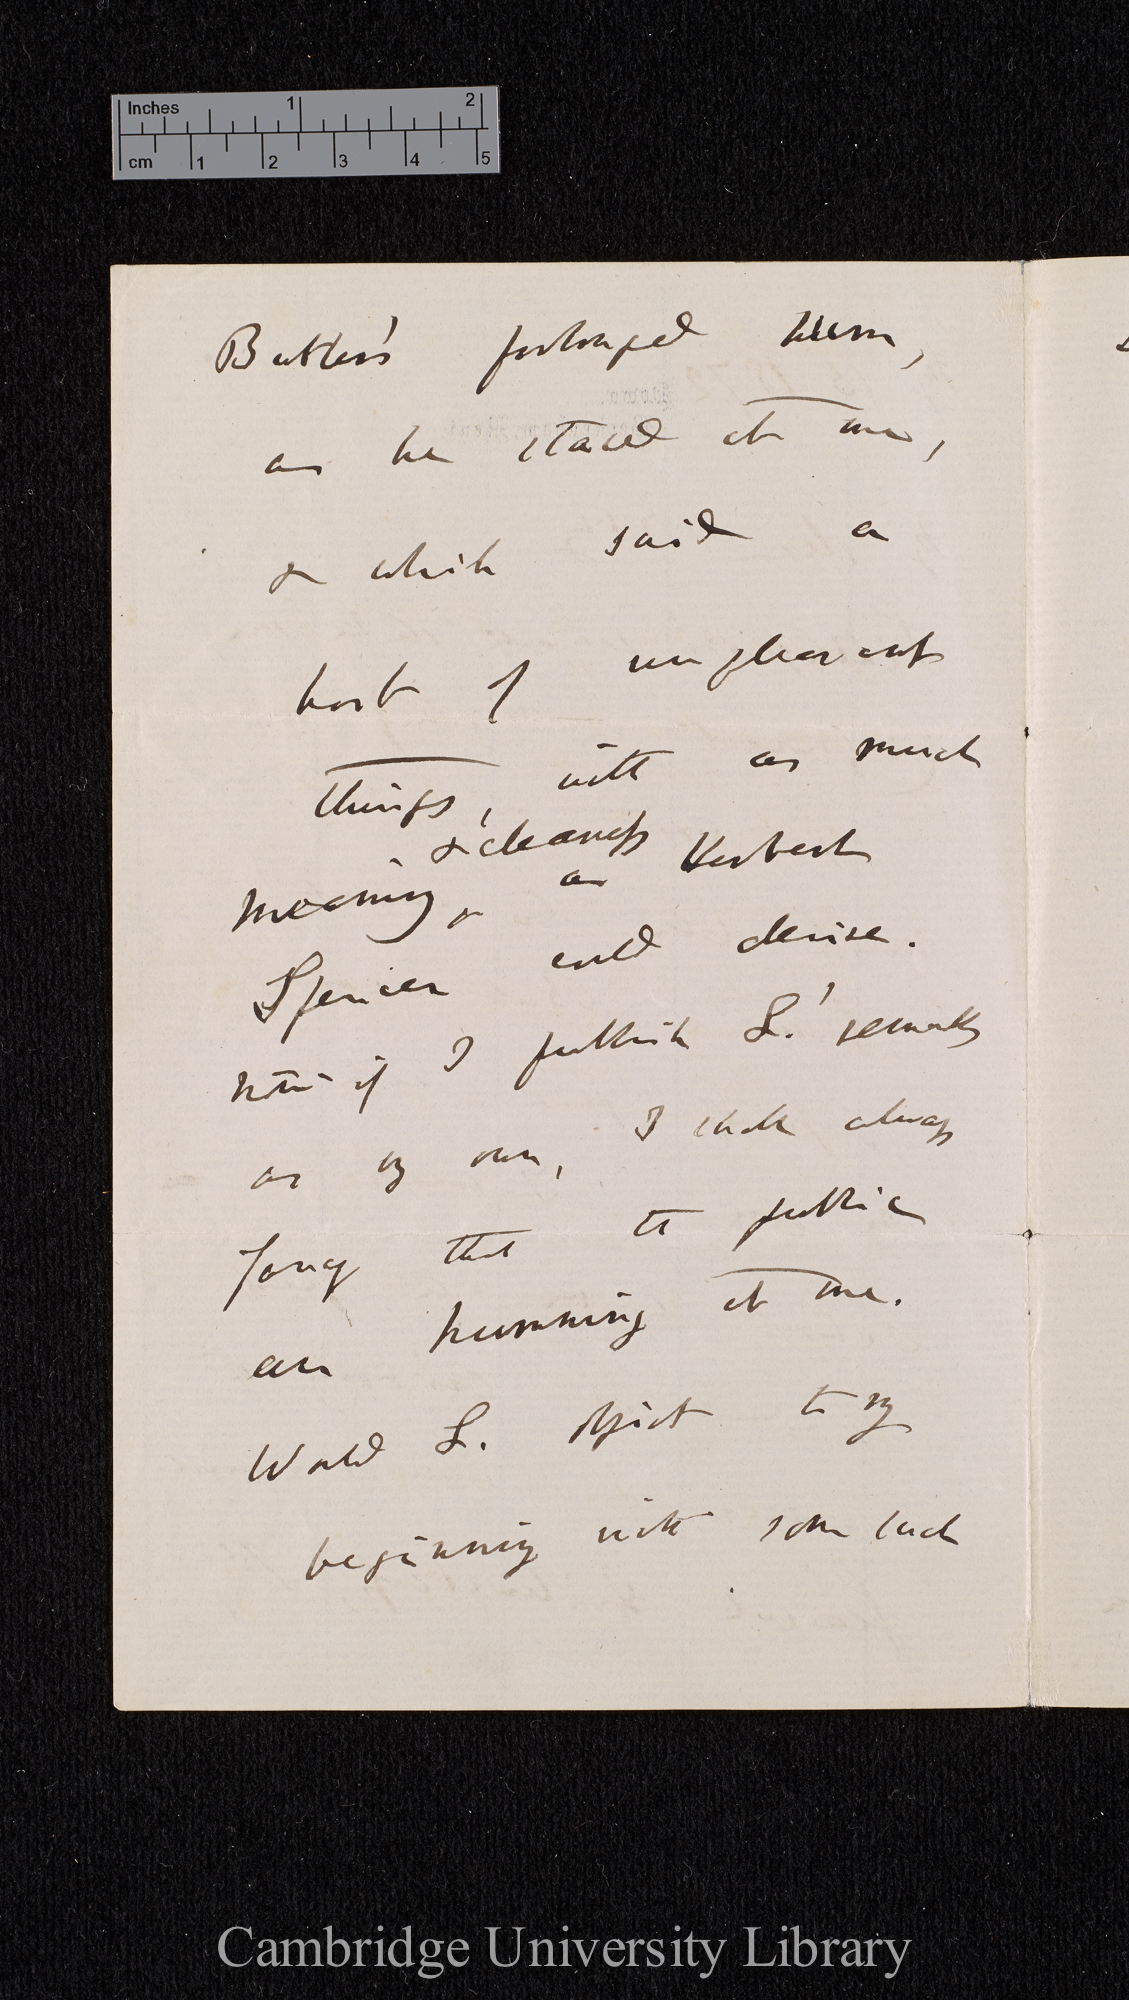 Inches 1 2
cm 1 2 3 4 5
Butler's prolonged hum,
as he stared at me,
& which said a
host of unpleasant
things, with as much
& clearness
meaning, as Herbert
Spencer could devise.
Now if I publish L.' remarks
as my own, I shall always
fancy that the public
are humming at me.
Would L. object to my
beginning with some such
Cambridge University Library